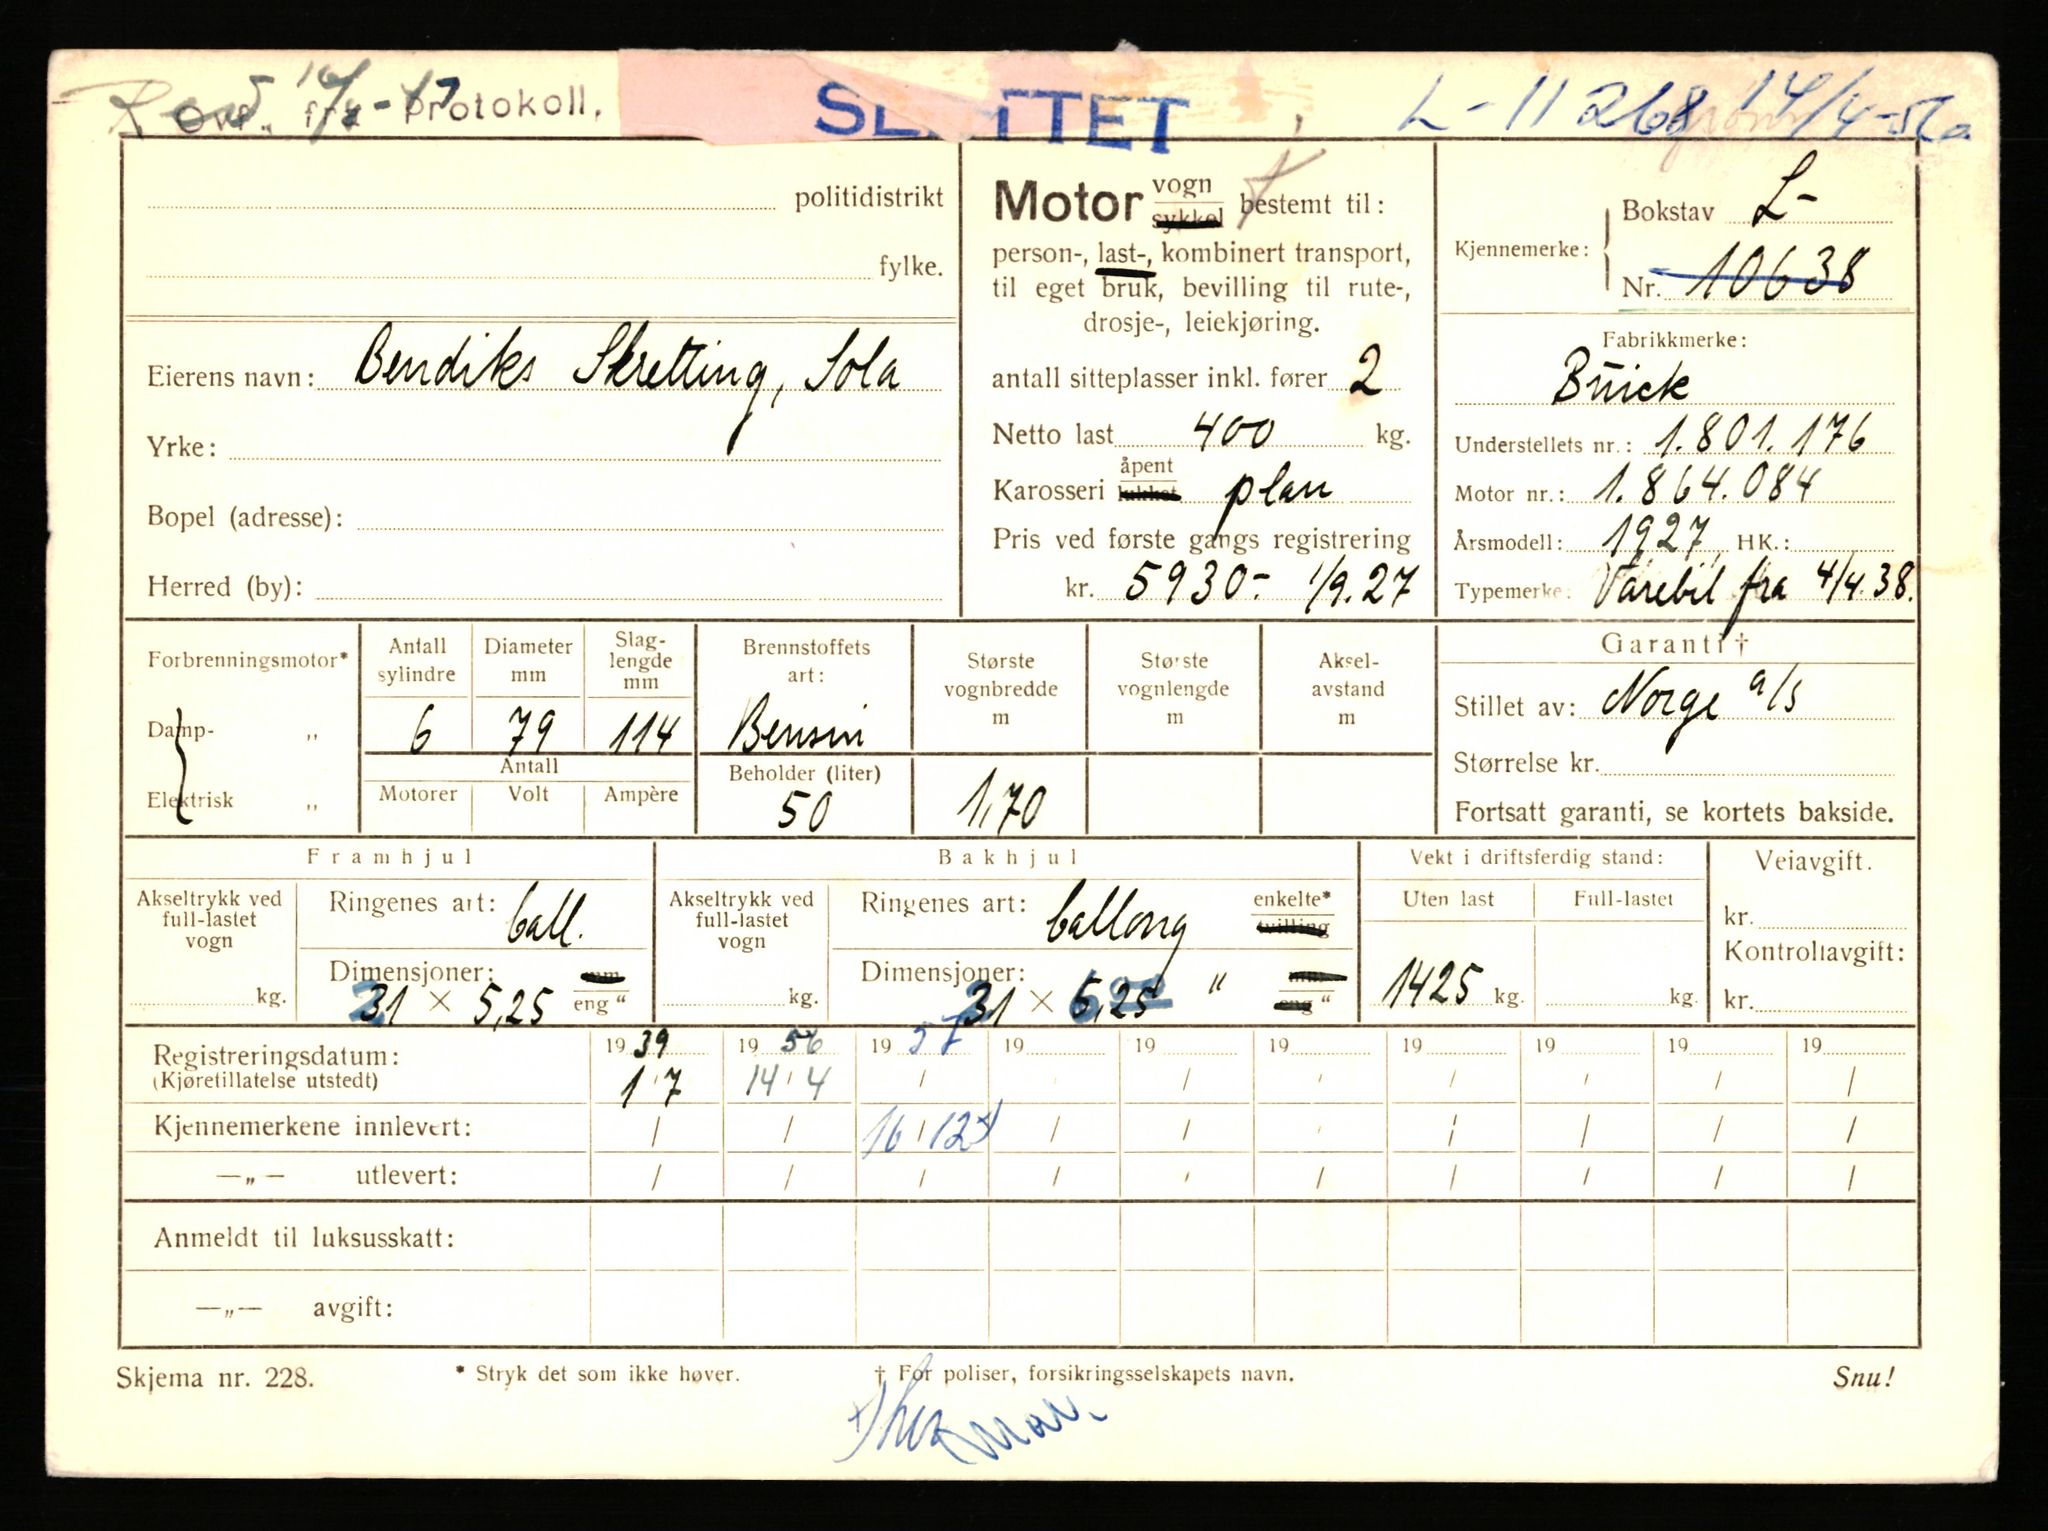 fra protokoll. SLETTET L-11268 14/4-56
politidistrikt
fylke.
Eierens navn: Bendiks Skretting, Sola
Yrke:
Bopel (adresse):
Herred (by):
Motor vogn sykkel bestemt til:
person-, last-, kombinert transport,
til eget bruk, bevilling til rute-,
drosje-, leiekjøring.
antall sitteplasser inkl. fører 2
Netto last 400 kg.
Karosseri åpent lukket plan
Pris ved første gangs registrering
kr. 5930.- 1/9.27
Kjennemerke: Bokstav L-
Nr. 10638
Fabrikkmerke:
Buick
Understellets nr.: 1.801.176
Motor nr.: 1.864.084
Årsmodell: 1927, HK.:
Typemerke: Varebil fra 4/4.38.
Forbrenningsmotor*
Damp- „
Elektrisk „
Antall sylindre 6
Diameter mm 79
Slaglengde mm 114
Antall
Motorer Volt Ampère
Brennstoffets art: Bensin
Beholder (liter) 50
Største vognbredde m 1,70
Største vognlengde m
Akselavstand m
Garanti †
Stillet av: Norge a/s
Størrelse kr.
Fortsatt garanti, se kortets bakside.
Framhjul
Akseltrykk ved full-lastet vogn kg.
Ringenes art: ball.
Dimensjoner: mm
31 × 5,25 eng "
Bakhjul
Akseltrykk ved full-lastet vogn kg.
Ringenes art: ballong enkelte* tvilling
Dimensjoner: mm
31 × 5,25 " eng "
Vekt i driftsferdig stand:
Uten last 1425 kg.
Full-lastet kg.
Veiavgift.
kr.
Kontrollavgift:
kr.
Registreringsdatum: 1939 1956 1957 19 19 19 19 19 19 19
(Kjøretillatelse utstedt) 1/7 14/4 / / / / / / / /
Kjennemerkene innlevert: / / 16/12 x) / / / / / / /
—„— utlevert: / / / / / / / / / /
Anmeldt til luksusskatt:
—„— avgift:
Skjema nr. 228. * Stryk det som ikke høver. † For poliser, forsikringsselskapets navn. Snu!